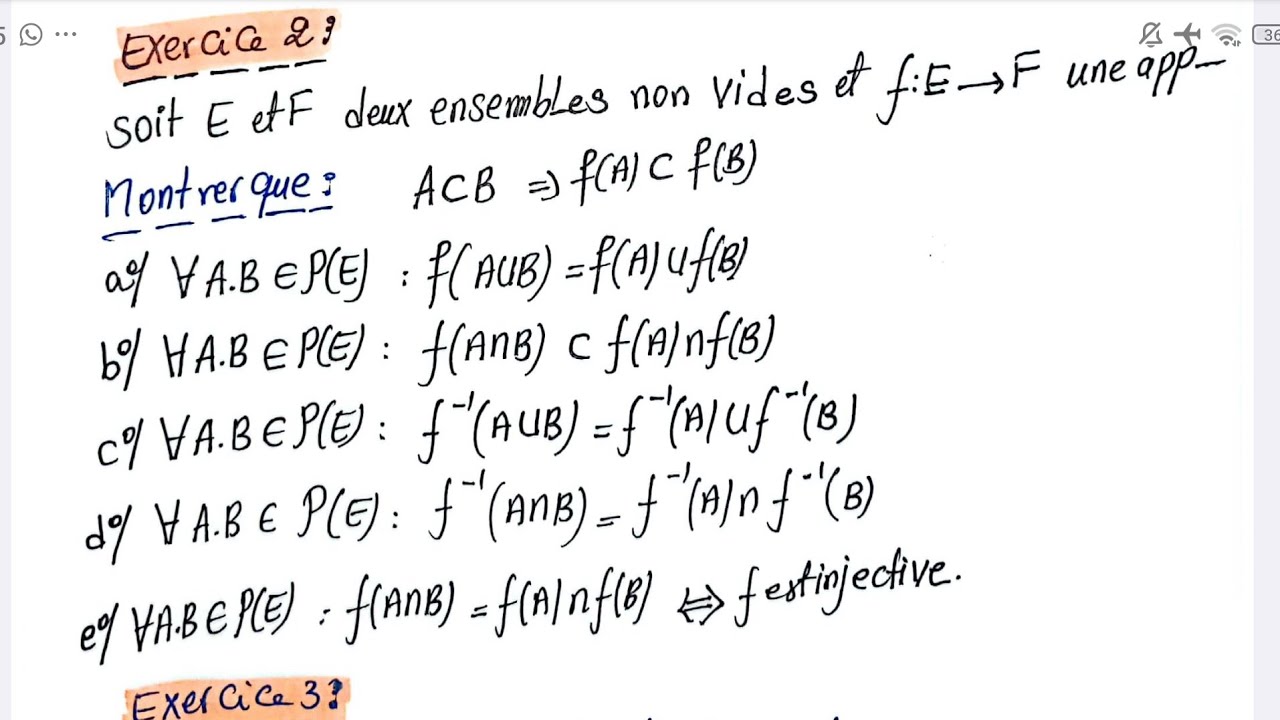 5 ... 36
Exercice 2:
soit E et F deux ensembles non vides et f:E→F une app-
Montrer que: A⊂B ⇒ f(A) ⊂ f(B)
a°/ ∀A.B ∈ P(E) : f(A∪B) = f(A)∪f(B)
b°/ ∀A.B ∈ P(E) : f(A∩B) ⊂ f(A)∩f(B)
c°/ ∀A.B ∈ P(E) : f⁻¹(A∪B) = f⁻¹(A)∪f⁻¹(B)
d°/ ∀A.B ∈ P(E) : f⁻¹(A∩B) = f⁻¹(A)∩f⁻¹(B)
e°/ ∀A.B ∈ P(E) : f(A∩B) = f(A)∩f(B) ⇔ f est injective.
Exercice 3: